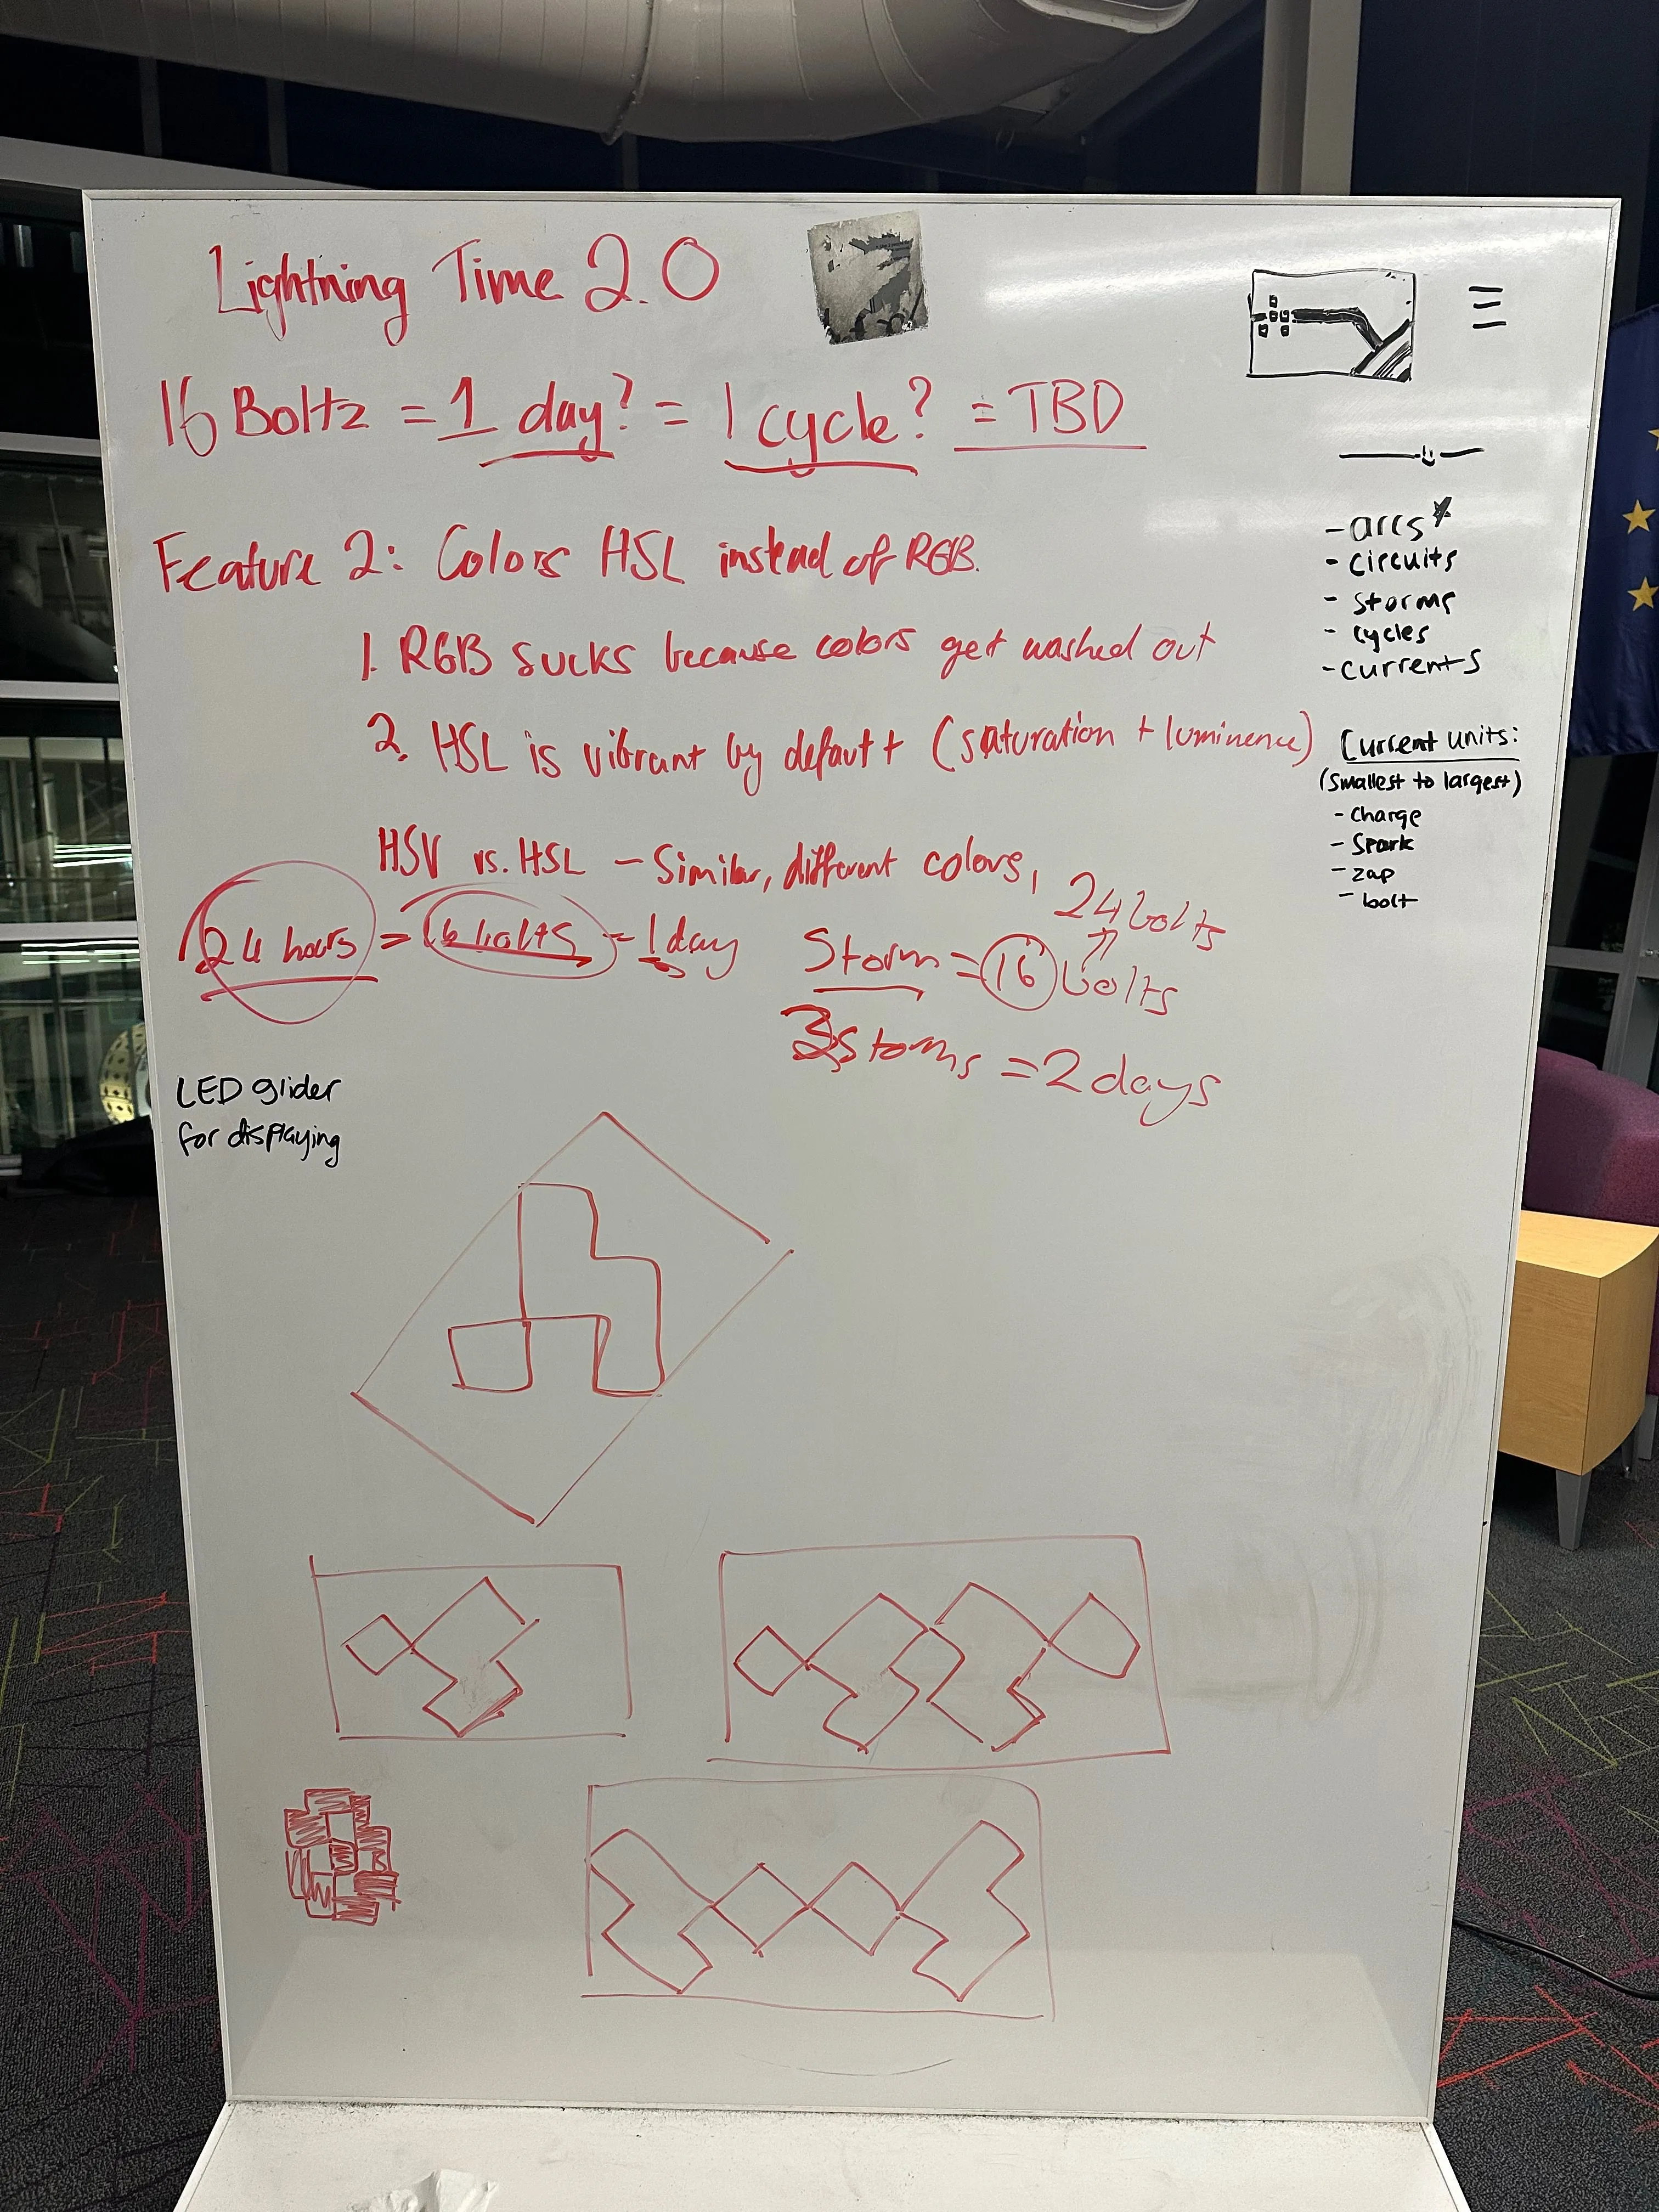 Lightning Time 2.0
16 Boltz = 1 day? = 1 cycle? = TBD
Feature 2: Colors HSL instead of RGB.
1. RGB sucks because colors get washed out
2. HSL is vibrant by default (saturation + luminence)
HSV vs. HSL - Similar, different colors,
24 hours = 16 bolts = 1 day
24 bolts
Storm = 16 bolts
3 Storms = 2 days
- arcs*
- circuits
- storms
- cycles
- currents
Current units:
(smallest to largest)
- Charge
- Spark
- zap
- bolt
LED glider
for displaying